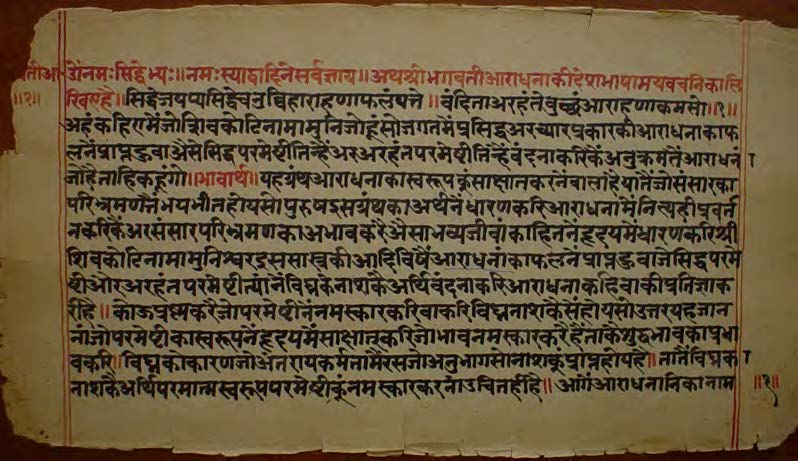 ॐनमःसिद्धेभ्यः॥नमःस्याद्वादिनेसर्वज्ञाय॥अथश्रीभगवतीआराधनाकीदेशभाषामयवचनिकालि
खिएहै॥सिद्धेजयप्पसिद्धेचउव्विहाराहणाफलंपत्ते॥वंदित्ताअरहंतेवुच्छंआराहणाकमसो॥१॥
अहंकहिएमैंजोशिवकोटिनामामुनिजोहूंसोजगतमैंप्रसिद्धअरच्यारप्रकारकीआराधनाकाफ
लनैंप्राप्तहुवाऔसेसिद्धपरमेष्टीतिन्हैंअरअरहंतपरमेष्टीतिन्हैंवंदनाकरिकैंअनुक्रमतैंआराधनं
जोहैनाहिकहूंगो॥भावार्थ॥यहग्रंथआराधनाकास्वरूपकूंसाक्षातकरनेंवालोहैयातैंजोसंसारका
परिभ्रमणतैंभयभीतहोयसोपुरुषइसग्रंथकाअर्थनेंधारणकरिआराधनामैंनित्यहीप्रवर्त्त
नकरिकैंअरसंसारपरिभ्रमणकाअभावकरैऔसाभव्यजीवांकाहितनेंहृदयमेंधारणकरिश्री
शिवकोटिनामामुनिश्वरइससास्त्रकीआदिविषैंआराधनांकाफलनेंप्राप्तहुवाजेसिद्धपरमे
ष्टीऔरअरहंतपरमेष्टीत्यांनेंविघ्नकेनाशकैअर्थिवंदनाकरिआराधनाकहिवाकीप्रतिज्ञाक
रीहै॥कोऊप्रश्नकरैजोपरमेष्टीनेंनमस्कारकरिवाकरिविघ्ननाशकैसेंहोयसोउत्तरयहजान
नांजोपरमेष्टीकास्वरूपनेंहृदयमेंसाक्षात्करिजोभावनमस्कारकरैहैंताकैशुद्धभावकाप्रभा
वकरि॥विघ्नकोकारणजोअंतरायकर्मतामेंरसजोअनुभागसोनाशकूंप्राप्तहोयहै॥तातैंविघ्नक
नाशकैअर्थिपरमात्मस्वरूपपरमेष्टीकूंनमस्कारकरनांउचितहीहै॥आगेंआराधनानिकानाम
॥१॥